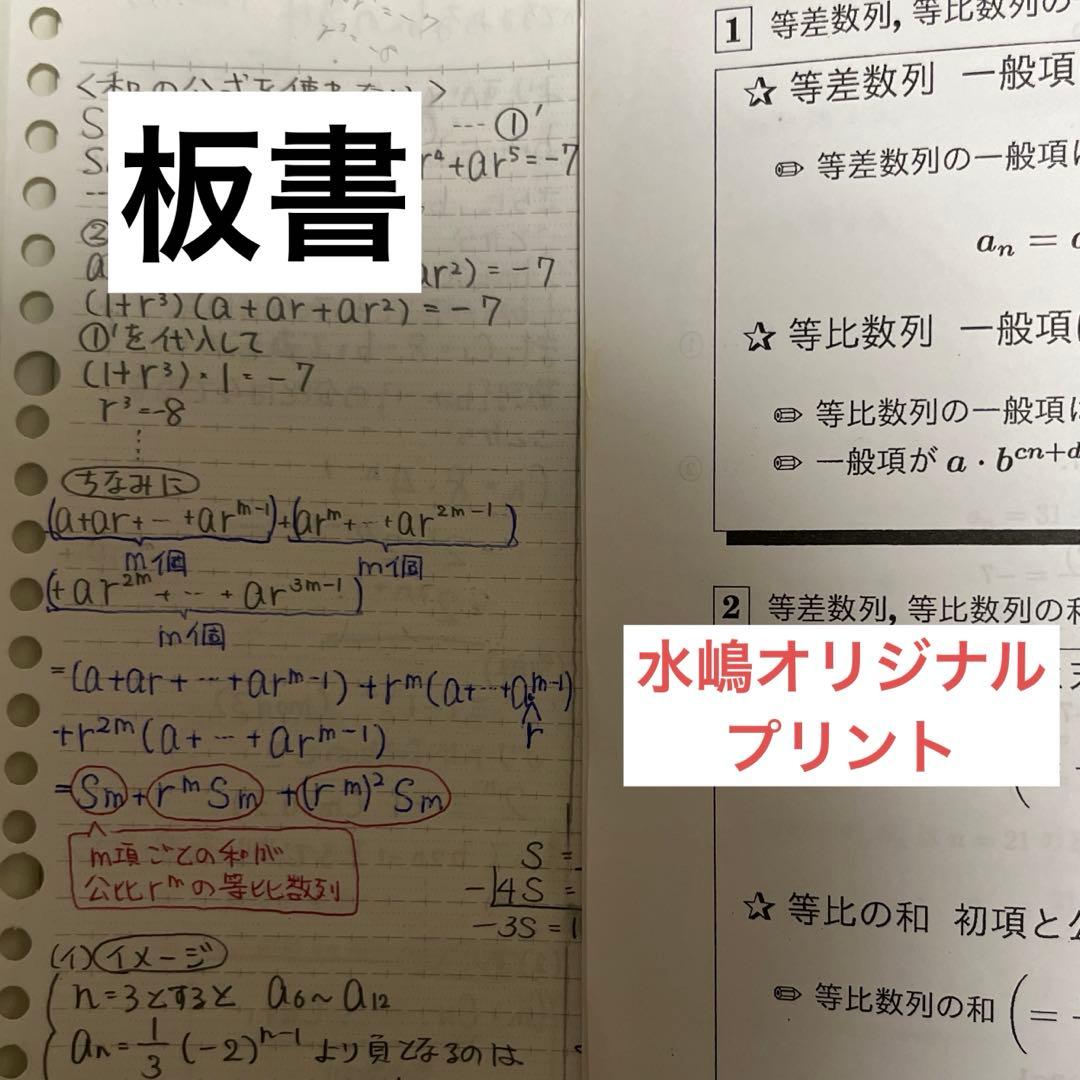 板書
<和の公式を使わない>
S
--- ①'
S
r⁴+ar⁵=-7
②
a
ar²)=-7
(1+r³)(a+ar+ar²)=-7
①'を代入して
(1+r³)・1=-7
r³=-8
ちなみに
(a+ar+…+ar^{m-1})+(ar^m+…+ar^{2m-1})
m個 m個
(+ar^{2m}+…+ar^{3m-1})
m個
=(a+ar+…+ar^{m-1})+r^m(a+…+ar^{m-1})
r
+r^{2m}(a+…+ar^{m-1})
=Sm+r^m Sm+(r^m)² Sm
m項ごとの和が
公比r^mの等比数列
S=
-4S=
-3S=1
(イ)イメージ
n=3とすると a₆~a₁₂
a_n=1/3(-2)^{n-1}より負となるのは
1 等差数列, 等比数列の
☆ 等差数列 一般項
✏ 等差数列の一般項は
a_n =
☆ 等比数列 一般項は
✏ 等比数列の一般項は
✏ 一般項が a・b^{cn+d}
2 等差数列, 等比数列の和
水嶋オリジナル
プリント
☆ 等比の和 初項と公
✏ 等比数列の和 (=